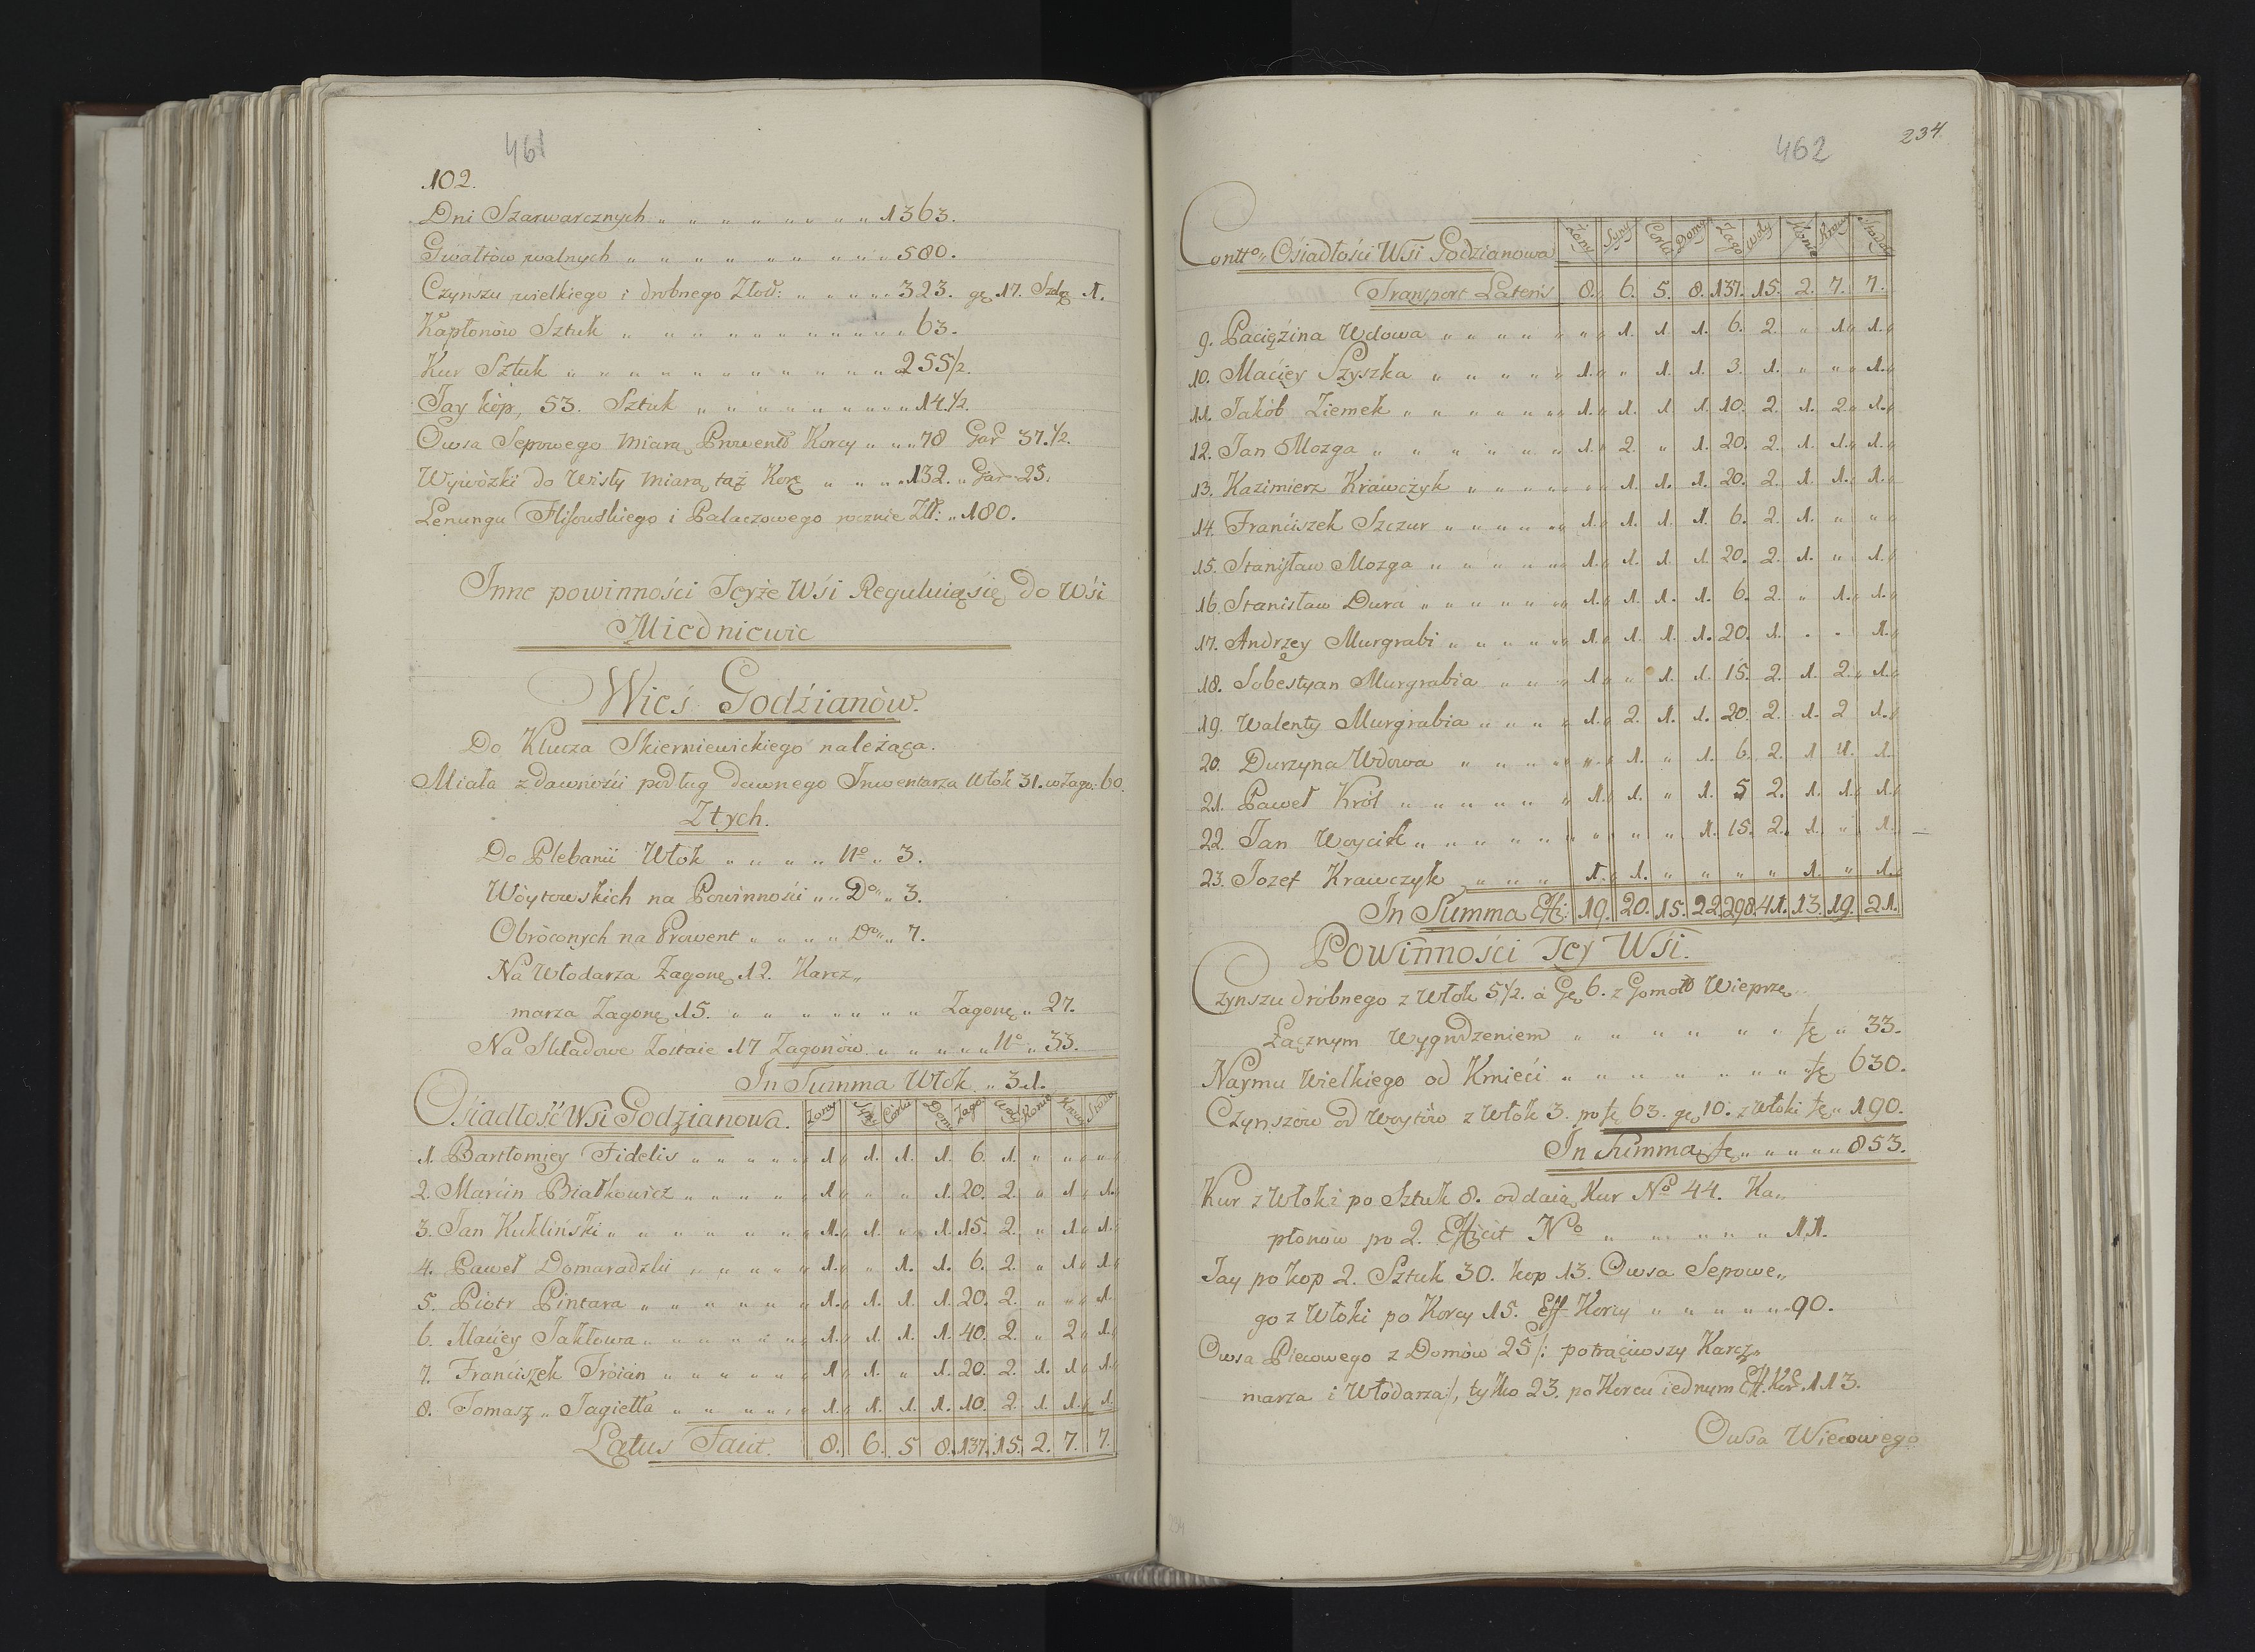 461
102.
Dni Szarwarcznych „ „ „ „ „ „ „ „ „ 1363.
Gwałtów walnych „ „ „ „ „ „ „ „ „ 580.
Czynszu wielkiego i drobnego Złot: „ „ „ „ „ 323. gę 17. Szelą 1.
Kapłonów Sztuk „ „ „ „ „ „ „ „ „ „ „ 63.
Kur Sztuk „ „ „ „ „ „ „ „ „ „ „ „ 255/2.
Jay kóp, 53. Sztuk „ „ „ „ „ „ „ „ „ 14.1/2.
Owsa Sepowego miarą Prowent Korcy „ „ „ 78 Gar 37.1/2.
Wywózki do Wisły miarą taż Korę „ „ „ „ 132. „ Gar 25.
Lenungu Flisowskiego i Pałaczowego rocznie Złł: „ 180.
Inne powinności Teyże Wśi Reguluią się do Wśi
Miedniewic
Wieś Godźianòw.
Do Klucza Skierniewickiego należąca.
Miała z dawności podług dawnego Inwentarza Włok 31. w Zago: 60.
Z tych.
Do Plebanii Włok „ „ „ „ No „ 3.
Wóytowskich na Powinności „ „ Do „ 3.
Obróconych na Prowent „ „ „ „ Do „ 7.
Na Włodarza Zagonę 12. Karcz„
marza Zagonę 15. „ „ „ „ „ „ „ „ Zagonę „ 27.
Na Składowe Zostaie 17 Zagonów „ „ „ „ „ No „ 33.
In Summa Włok „ 31.
Osiadłość Wsi Godzianowa. Zony Syny Corki Domy Zago: Woły Konie Krowy Stado
1. Bartłomiey Fidelis „ „ „ „ „ 1. 1. 1. 1. 6. 1. „ „ „
2. Marcin Białkowicz „ „ „ „ „ 1. „ „ 1. 20. 2. „ 1. 1.
3. Jan Kukliński „ „ „ „ „ „ „ 1. 1. „ 1. 15. 2. „ 1. 1.
4. Paweł Domaradzki „ „ „ „ „ 1. „ 1. 1. 6. 2. „ 1. 1.
5. Piotr Pintara „ „ „ „ „ „ „ 1. 1. 1. 1. 20. 2. „ „ 1.
6. Maciey Jakłowa „ „ „ „ „ „ 1. 1. 1. 1. 40. 2. „ 2. 1.
7. Franciszek Tróian „ „ „ „ „ „ 1. 1. „ 1. 20. 2. 1. 1. 1.
8. Tomasz „ Jagiełła „ „ „ „ „ 1. 1. 1. 1. 10. 2. 1. 1. 1.
Latus Facit. 8. 6. 5 8. 137. 15. 2. 7. 7.
462
234
Contto „ Ośiadłości Wśi Godzianowa Zony Syny Corki Domy Zago Woły Konie Krowy Stado
Transport Lateris 8. 6. 5. 8. 137. 15. 2. 7. 7.
9. Pacięźina Wdowa „ „ „ „ „ „ 1. 1. 1. 6. 2. „ 1. 1.
10. Maciey Szyszka „ „ „ „ „ 1. „ 1. 1. 3. 1. „ „ 1.
11. Jakób Ziemek „ „ „ „ „ „ 1. 1. 1. 1. 10. 2. 1. 2. 1.
12. Jan Mozga „ „ „ „ „ „ 1. 2. „ 1. 20. 2. 1. 1. 1.
13. Kazimierz Krawczyk „ „ „ „ „ „ 1. 1. 1. 20. 2. 1. 1. 1.
14. Franciszek Szczur „ „ „ „ „ 1. 1. 1. 1. 6. 2. 1. „ „
15. Stanisław Mozga „ „ „ „ „ „ 1. 1. 1. 1. 20. 2. 1. „ 1.
16. Stanisław Dura „ „ „ „ „ „ 1. 1. 1. 1. 6. 2. „ 1. 1.
17. Andrzey Murgrabi „ „ „ „ „ 1. 1. 1. 1. 20. 1. . . 1.
18. Sobestyan Murgrabia „ „ „ 1. „ 1. 1. 15. 2. 1. 2. 1.
19. Walenty Murgrabia „ „ „ „ 1. 2. 1. 1. 20. 2. 1. 2 1.
20. Durzyna Wdowa „ „ „ „ „ 1. „ 1. 6. 2. 1 1. 1.
21. Paweł Król „ „ „ „ „ „ 1. 1. „ 1. 5 2. 1. 1. 1.
22. Jan Woycik „ „ „ „ „ „ „ „ „ 1. 15. 2. 1. „ 1.
23. Jozef Krawczyk „ „ „ 1. 1. „ „ „ „ 1. „ 1.
In Summa Effi: 19. 20. 15. 22. 298. 41. 13. 19. 21.
Powinności Tey Wśi.
Czynszu dróbnego z Włok 5 1/2. á Gę 6. z Wieprzę
Łącznym „ „ „ „ „ „ „ fę „ 33.
Naymu Wielkiego od Kmieći „ „ „ „ „ „ „ „ fę 630.
Czynszów od Woytów z Włok 3. po fę 63. gę 10. z Włoki fę „ 190.
In Summa fę „ „ „ „ „ 853.
Kur z Włoki po Sztuk 8. oddaią Kur No 44. Ka„
płonów po 2. Efficit No „ „ „ „ „ „ 11.
Jay po kop 2. Sztuk 30. kop 13. Owsa Sepowe„
go z Włoki po Korcy 15. Eff Korcy „ „ „ „ „ „ 90.
Owsa Piecowego z Domów 25 /: potrąciwszy Karcz„
marza i Włodarza /, tylko 23. po Korcu iednym Eff. Kor. 113.
Owsa Wiecowego